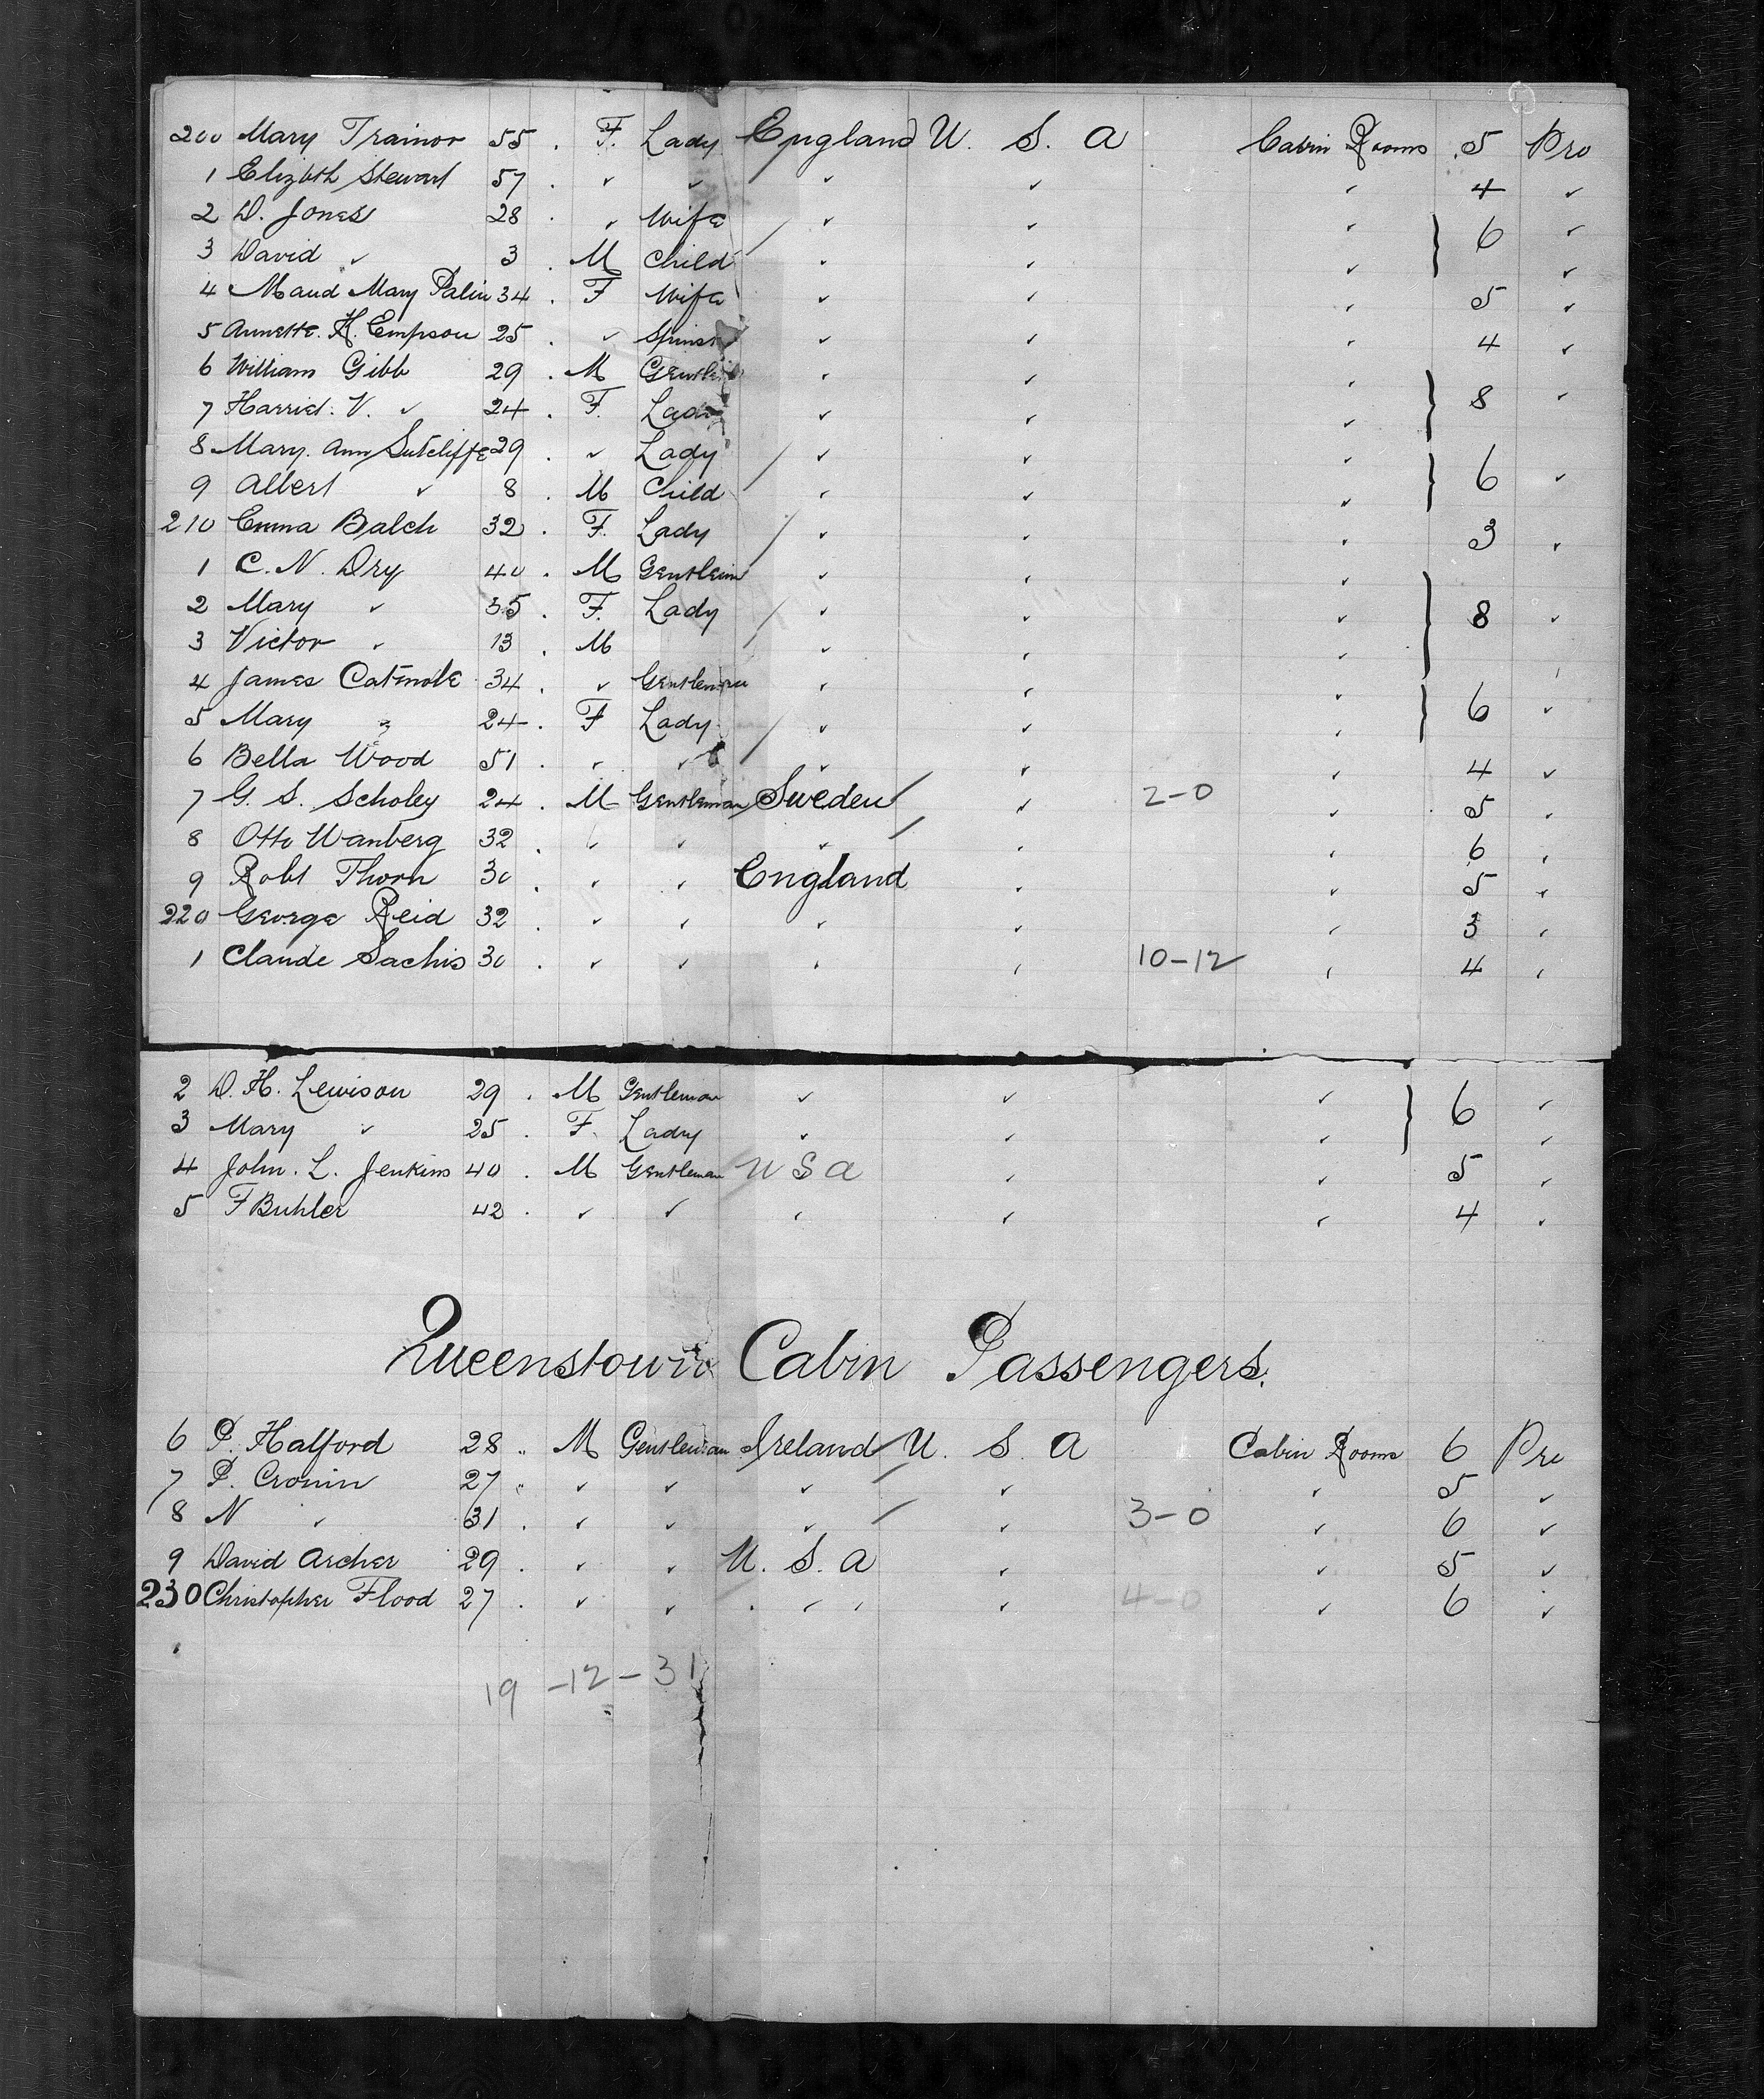 200 Mary Trainor 55 . F. Lady England U. S. A Cabin Rooms 5 Pro
1 Elizbth Stewart 57 . " " " " " 4 "
2 D. Jones 28 . " Wife " " " } 6 "
3 David " 3 . M Child " " " "
4 Maud Mary Palin 34 . F Wife " " " 5 "
5 Annette. H. Empson 25 . " Spinst " " " 4 "
6 William Gibb 29 . M " " " } 8 "
7 Harriet. V. " 24 . F. Lady " " "
8 Mary. Ann Sutcliffe 29 . " Lady " " " } 6 "
9 Albert " 8 . M Child " " "
210 Emma Balch 32 . F. Lady " " " 3 "
1 C. N. Dry 40 . M " " " } 8
2 Mary " 35 . F. Lady " " " "
3 Victor " 13 . M " " "
4 James 34 . " Gentleman " " " } 6 "
5 Mary " 24 . F Lady " " "
6 Bella Wood 51 . " " " " " 4 "
7 G. S. Scholey 24 . M Gentleman Sweden " 2-0 " 5 "
8 Otto Wanberg 32 . " " " " " 6 "
9 Robt Thorn 30 . " " England " " 5 "
220 George Reid 32 . " " " " " 3 "
1 Claude Sachis 30 . " " " " 10-12 " 4 "
2 D. H. Lewison 29 . M Gentleman " " " } 6 "
3 Mary " 25 . F. Lady " " " "
4 John. L. Jenkins 40 . M Gentleman U S A " " 5 "
5 F Buhler 42 . " " " " " 4 "
Queenstown Cabin Passengers.
6 P. Halford 28 " M Gentleman Ireland U. S. A Cabin Rooms 6 Pro
7 P. Cronin 27 " " " " " " 5 "
8 N " 31 . " " " " 3-0 " 6 "
9 David Archer 29 . " " U. S. A " " 5 "
230 Christopher Flood 27 . " " " " 4-0 " 6 "
19 -12-31